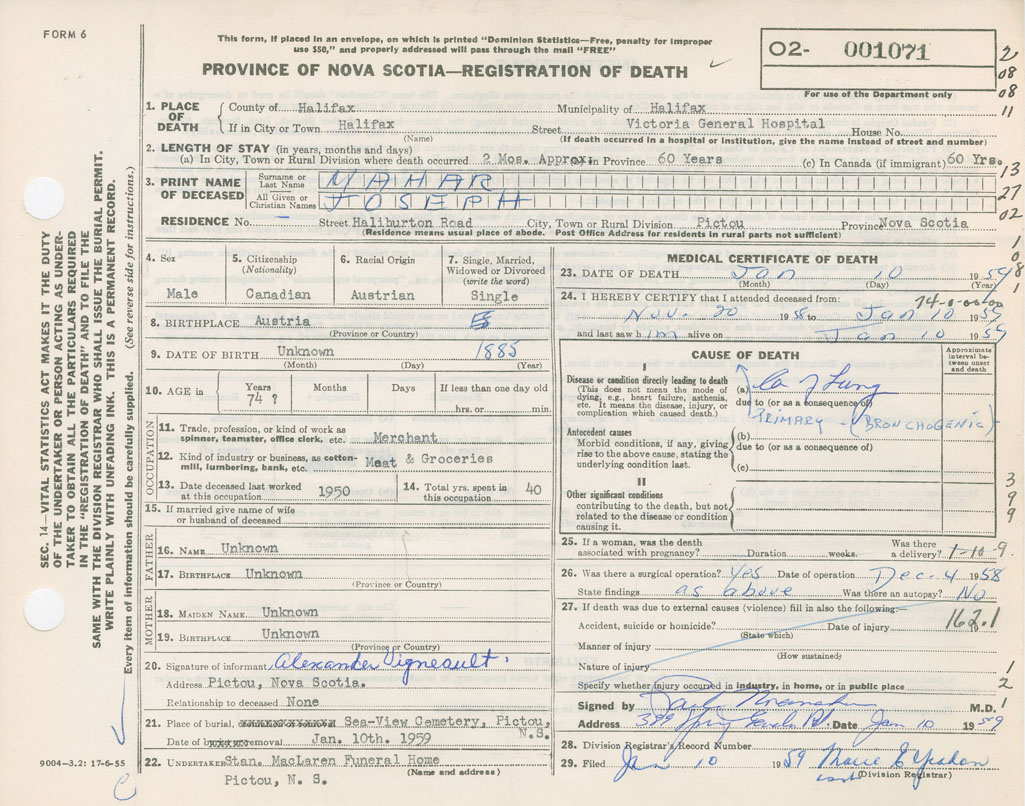 FORM 6
This form, if placed in an envelope, on which is printed "Dominion Statistics—Free, penalty for improper
use $50," and properly addressed will pass through the mail "FREE"
PROVINCE OF NOVA SCOTIA—REGISTRATION OF DEATH
O2- 001071
For use of the Department only
2
08
08
11
13
27
02
1. PLACE OF DEATH
County of Halifax Municipality of Halifax
If in City or Town Halifax Street Victoria General Hospital House No.
(Name) (If death occurred in a hospital or institution, give the name instead of street and number)
2. LENGTH OF STAY (in years, months and days)
(a) In City, Town or Rural Division where death occurred 2 Mos. Approx. in Province 60 Years (c) In Canada (if immigrant) 60 Yrs.
3. PRINT NAME OF DECEASED
Surname or Last Name MAHAR
All Given or Christian Names JOSEPH
RESIDENCE No. — Street Haliburton Road City, Town or Rural Division Pictou Province Nova Scotia
(Residence means usual place of abode. Post Office Address for residents in rural parts not sufficient)
4. Sex
Male
5. Citizenship
(Nationality)
Canadian
6. Racial Origin
Austrian
7. Single, Married,
Widowed or Divorced
(write the word)
Single
8. BIRTHPLACE Austria
(Province or Country)
9. DATE OF BIRTH Unknown 1885
(Month) (Day) (Year)
10. AGE in Years Months Days If less than one day old
74 ? hrs. or min.
OCCUPATION
11. Trade, profession, or kind of work as
spinner, teamster, office clerk, etc. Merchant
12. Kind of industry or business, as cotton-
mill, lumbering, bank, etc. Meat & Groceries
13. Date deceased last worked
at this occupation 1950
14. Total yrs. spent in
this occupation 40
15. If married give name of wife
or husband of deceased
FATHER
16. NAME Unknown
17. BIRTHPLACE Unknown
(Province or Country)
MOTHER
18. MAIDEN NAME Unknown
19. BIRTHPLACE Unknown
(Province or Country)
20. Signature of informant Alexander Vigneault.
Address Pictou, Nova Scotia.
Relationship to deceased None
21. Place of burial, Sea-View Cemetery, Pictou,
N.S.
Date of removal Jan. 10th. 1959
22. UNDERTAKER Stan. MacLaren Funeral Home
(Name and address)
Pictou, N. S.
MEDICAL CERTIFICATE OF DEATH
23. DATE OF DEATH Jan 10 1959
(Month) (Day) (Year)
24. I HEREBY CERTIFY that I attended deceased from:
Nov. 20 1958 to Jan 10 1959
and last saw him alive on Jan 10 1959
CAUSE OF DEATH
Approximate
interval be-
tween onset
and death
I
Disease or condition directly leading to death
(This does not mean the mode of
dying, e.g., heart failure, asthenia,
etc. It means the disease, injury, or
complication which caused death.)
(a) Ca of Lung
due to (or as a consequence of)
PRIMARY - (BRONCHOGENIC)
Antecedent causes
Morbid conditions, if any, giving
rise to the above cause, stating the
underlying condition last.
(b)
due to (or as a consequence of)
(c)
II
Other significant conditions
contributing to the death, but not
related to the disease or condition
causing it.
3
9
9
25. If a woman, was the death
associated with pregnancy? Duration weeks. Was there
a delivery? 1-10-9.
26. Was there a surgical operation? Yes Date of operation Dec. 4 1958
State findings as above Was there an autopsy? No
27. If death was due to external causes (violence) fill in also the following:—
Accident, suicide or homicide? Date of injury 19
162.1
(State which)
Manner of injury
(How sustained)
Nature of injury
1
Specify whether injury occurred in industry, in home, or in public place
2
Signed by M.D.
1
Address 399 Spring Garden Rd. Date Jan 10 1959
28. Division Registrar's Record Number
29. Filed Jan 10 1959 Marie E
(Division Registrar)
SEC. 14—VITAL STATISTICS ACT MAKES IT THE DUTY
OF THE UNDERTAKER OR PERSON ACTING AS UNDER-
TAKER TO OBTAIN ALL THE PARTICULARS REQUIRED
IN THE "REGISTRATION OF DEATH" AND TO FILE THE
SAME WITH THE DIVISION REGISTRAR WHO SHALL ISSUE THE BURIAL PERMIT.
WRITE PLAINLY WITH UNFADING INK. THIS IS A PERMANENT RECORD.
Every item of information should be carefully supplied. (See reverse side for instructions.)
9004-3.2: 17-6-55